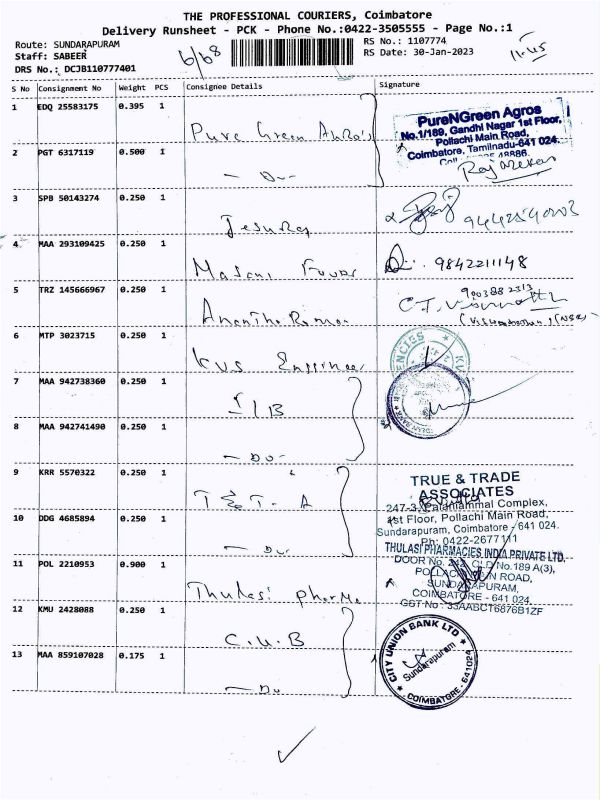 THE PROFESSIONAL COURIERS, Coimbatore
Delivery Runsheet - PCK - Phone No.:0422-3505555 - Page No.:1
Route: SUNDARAPURAM
Staff: SABEER
DRS No.: DCJB110777401
6/68
RS No.: 1107774
RS Date: 30-Jan-2023
11.45
S No Consignment No Weight PCS Consignee Details Signature
1 EDQ 25583175 0.395 1 Pure Green Agro's
PureNGreen Agros
No.1/189, Gandhi Nagar 1st Floor,
Pollachi Main Road,
Coimbatore, Tamilnadu-641 024.
48886.
Rajasekar
2 PGT 6317119 0.500 1 - Do -
3 SPB 50143274 0.250 1 Jesuraj
4 MAA 293109425 0.250 1 Masani
9842211148
5 TRZ 145666967 0.250 1 Anantha Raman
9003882313
6 MTP 3023715 0.250 1 KVS Engineer
7 MAA 942738360 0.250 1 I/B
8 MAA 942741490 0.250 1 - Do -
9 KRR 5570322 0.250 1 T & T. A
TRUE & TRADE
ASSOCIATES
247-3, Palaniammal Complex,
1st Floor, Pollachi Main Road,
Sundarapuram, Coimbatore - 641 024.
Ph: 0422-2677111
10 DDG 4685894 0.250 1 - Do -
11 POL 2210953 0.900 1 Thulasi Pharma
THULASI PHARMACIES INDIA PRIVATE LTD.
DOOR No. 242, OLD No.189 A(3),
POLLACHI MAIN ROAD,
SUNDARAPURAM,
COIMBATORE - 641 024.
GST No : 33AABCT6676B1ZF
12 KMU 2428088 0.250 1 C.U.B
13 MAA 859107028 0.175 1 - Do
CITY UNION BANK LTD
Sundarapuram
COIMBATORE - 641024